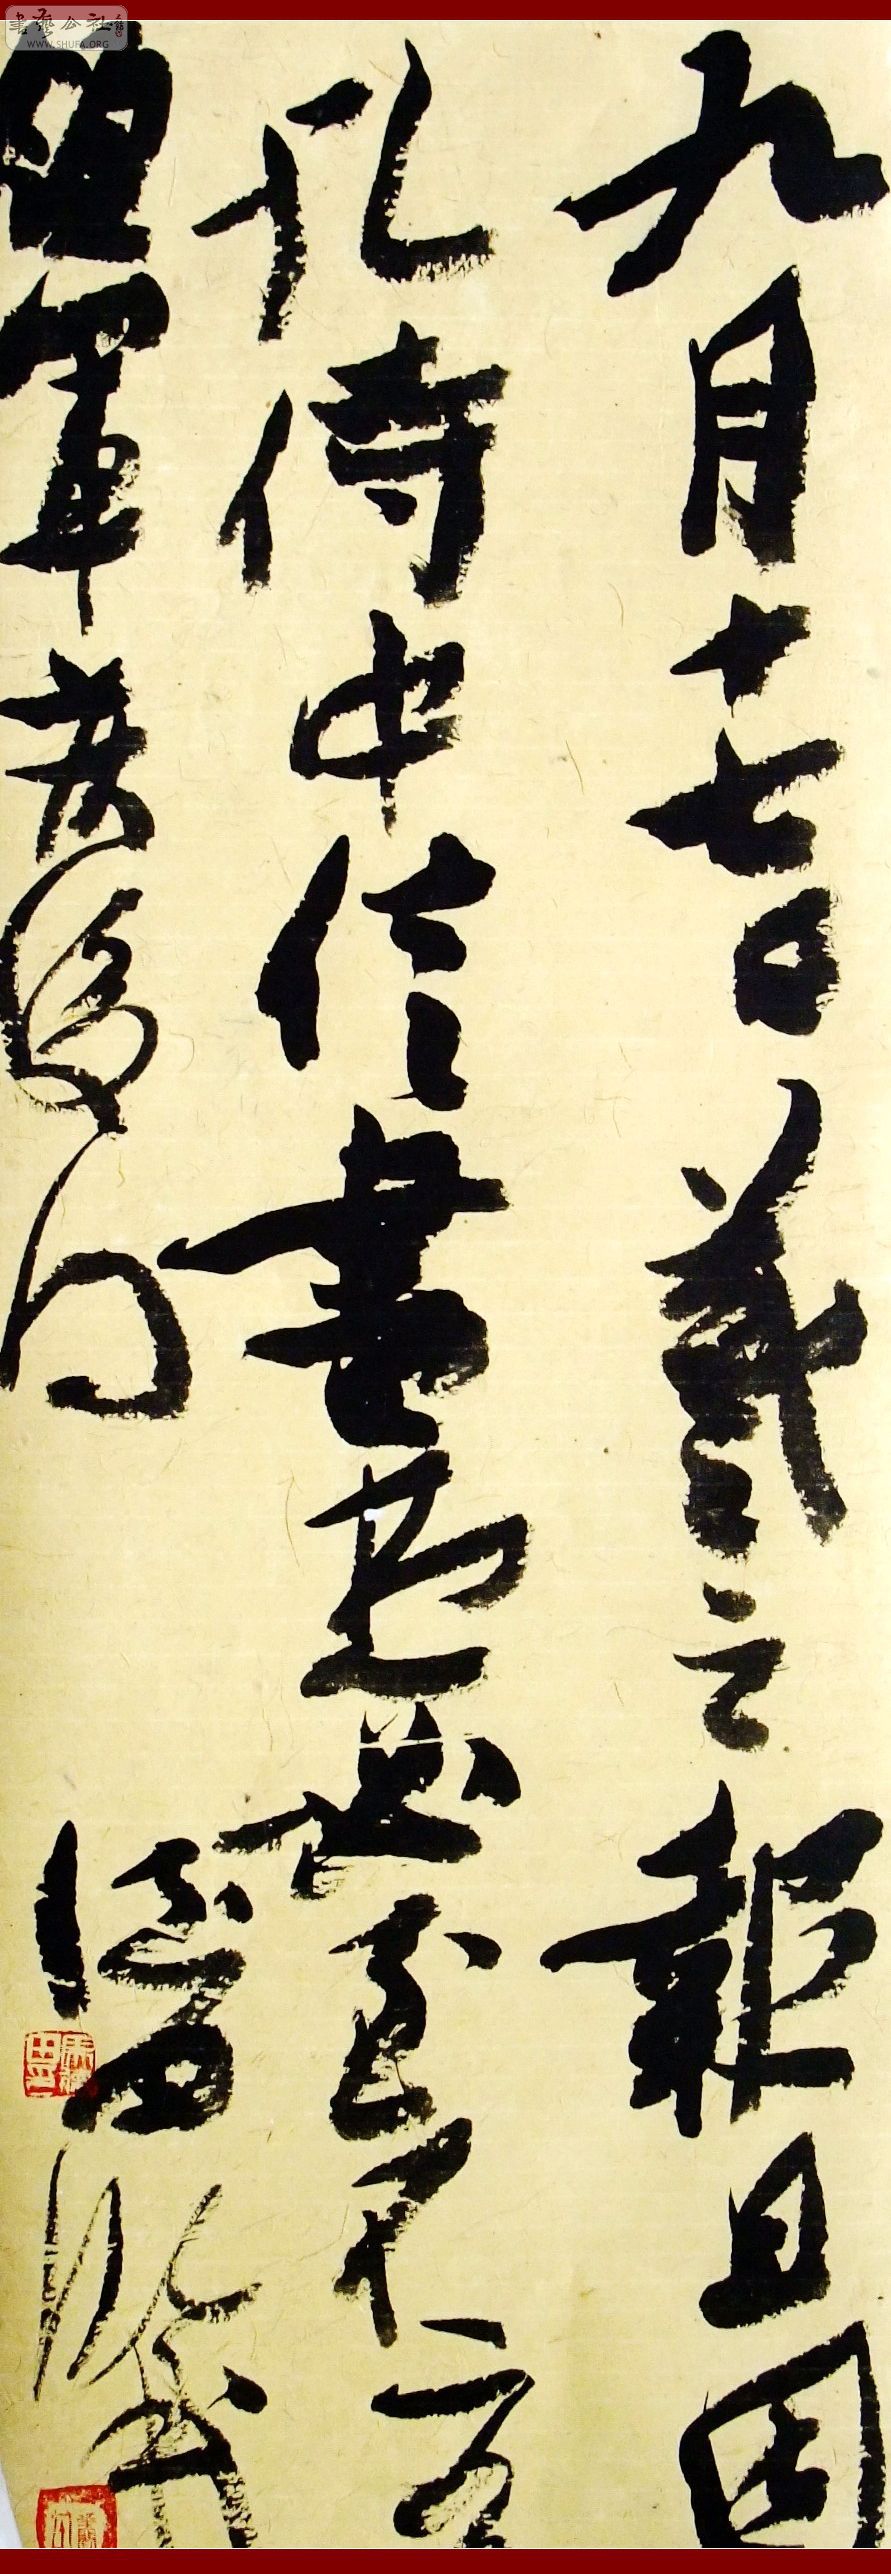 書藝公社
WWW.SHUFA.ORG
九月十七日羲之報且因
孔侍中信書想必至不知
領軍疾後問